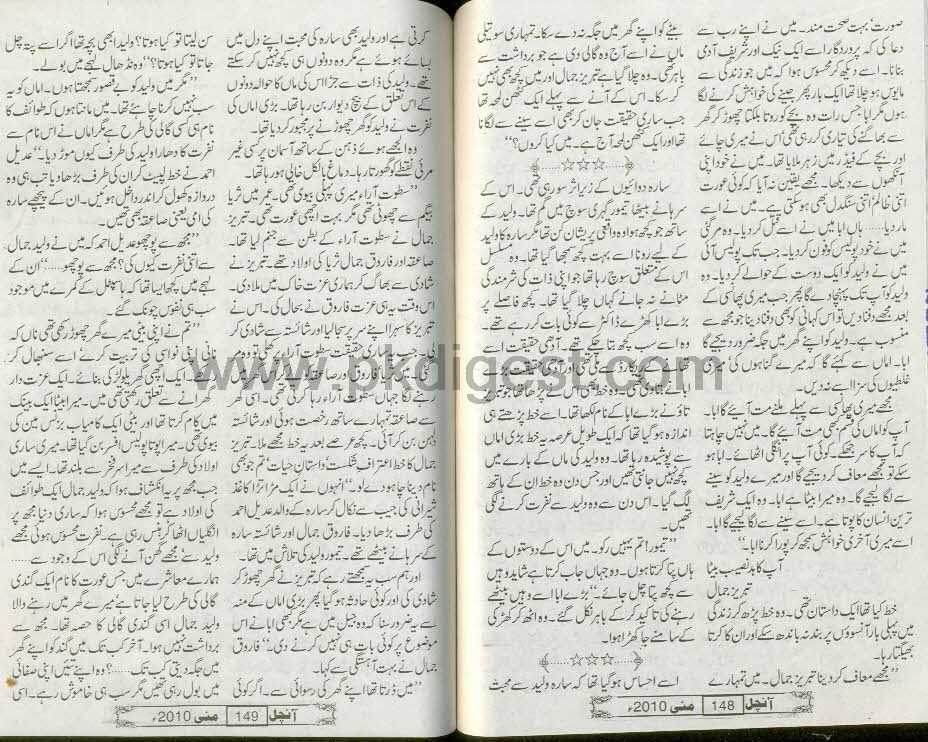 صورت‘ بہت صحت مند۔ میں نے اپنے رب سے
دعا کی کہ پروردگار اسے ایک نیک اور شریف آدمی
بنانا۔ اسے دیکھ کر محسوس ہوا کہ میں جو زندگی سے
مایوس ہو چلا تھا ایک بار پھر جینے کی خواہش کرنے لگا
ہوں مگر ابا جس رات وہ بچے کو روتا بلکتا چھوڑ کر گھر
سے بھاگنے کی تیاری کر رہی تھی اس نے میری چائے
اور بچے کے فیڈر میں زہر ملایا تھا۔ میں نے خود اپنی
آنکھوں سے دیکھا۔ مجھے یقین نہ آیا کہ کوئی عورت
اتنی ظالم‘ اتنی سنگدل بھی ہو سکتی ہے۔ میں نے اسے
مار دیا..... ہاں ابا میں نے اسے قتل کر دیا۔ وہ مر گئی
میں نے خود پولیس کو فون کر دیا۔ جب تک پولیس آئی
میں نے ولید کو ایک دوست کے حوالے کر دیا۔ وہ
ولید کو آپ تک پہنچا دے گا پھر جب میری پھانسی کے
بعد مجھے دفنا دیں تو اس کہانی کو بھی دفنا دینا جو مجھ سے
منسوب ہے۔ ولید کو اپنے گھر میں جگہ ضرور دیجیے گا
ابا۔ اماں سے کہئے گا کہ میرے گناہوں کی‘ میری
غلطیوں کی سزا اسے نہ دیں۔
مجھے میری پھانسی سے پہلے ملنے مت آئیے گا ابا۔
آپ کو اماں کی قسم بھی مت آئیے گا۔ میں نہیں چاہتا
کہ آپ کا سر جھکے۔ کوئی آپ پر انگلی اٹھائے۔ ابا ہو
سکے تو مجھے معاف کر دیجیے گا اور میرے ولید کو سینے
سے لگا لیجیے گا۔ وہ میرا بیٹا ہے ابا۔ وہ ایک شریف
ترین انسان کا پوتا ہے۔ اسے سینے سے لگا لیجیے گا ابا۔
اسے میری آخری خواہش سمجھ کر پورا کرنا ابا۔‘‘
آپ کا بدنصیب بیٹا
تبریز جمال
خط کیا تھا ایک داستان تھی۔ وہ خط پڑھ کر زندگی
میں پہلی بار آنسوؤں پر بند نہ باندھ سکے اور ان کا کرتا
بھیگتا رہا۔
’’مجھے معاف کر دینا تبریز جمال۔ میں تمہارے
بیٹے کو اپنے گھر میں جگہ نہ دے سکا۔ تمہاری سوتیلی
ماں نے اسے آج وہ گالی دی ہے جو برداشت سے
باہر تھی۔ وہ چلا گیا ہے تبریز جمال اور میں کچھ بھی نہیں
کر سکا۔ اس کے آنے سے پہلے ایک کٹھن لمحہ تھا
جب ساری حقیقت جان کر بھی اسے سینے سے لگانا
تھا اور ایک کٹھن لمحہ آج ہے۔ میں کیا کروں؟‘‘
☆☆☆
سارہ دوائیوں کے زیر اثر سو رہی تھی۔ اس کے
سرہانے بیٹھا تیمور گہری سوچ میں گم تھا۔ ولید کے
ساتھ جو کچھ ہوا وہ واقعی پریشان کن تھا مگر سارہ کا ولید
کے لیے رونا اسے بہت کچھ سمجھا گیا تھا۔ وہ مسلسل
اس کے متعلق سوچ رہا تھا جو اپنی ذات کی شرمندگی
مٹانے نہ جانے کہاں چلا گیا تھا۔ کچھ فاصلے پر
بڑے ابا کھڑے ڈاکٹر سے کوئی بات کر رہے تھے۔
وہ اسے سب کچھ بتا چکے تھے۔ آدھی حقیقت اسے
تاؤ نے بڑے ابا کے نام لکھا تھا۔ اسے پڑھتے ہی
اندازہ ہو گیا تھا کہ ایک طویل عرصہ یہ خط بڑی اماں
سے پوشیدہ رہا تھا۔ وہ ولید کی ماں کے بارے میں
کچھ نہیں جانتی تھیں اور جس دن وہ خط ان کے ہاتھ
لگ گیا۔ اس دن سے وہ ولید سے نفرت کرنے لگی
تھیں۔
’’تیمور! تم یہیں رکو۔ میں اس کے دوستوں کے
ہاں پتا کرتا ہوں۔ وہ جہاں جاب کرتا ہے شاید وہیں
سے کچھ پتا چل جائے۔‘‘ بڑے ابا اسے وہیں بیٹھے
رہنے کی تاکید کر کے باہر نکل گئے۔ وہ اٹھ کر کھڑکی
کے سامنے جا کھڑا ہوا۔
☆☆☆
اسے احساس ہو گیا تھا کہ سارہ ولید سے محبت
آنچل 148 مئی 2010ء
کرتی ہے اور ولید بھی سارہ کی محبت اپنے دل میں
بسائے ہوئے ہے مگر وہ دونوں ہی کچھ نہیں کر سکتے
تھے۔ ولید کی ذات سے جڑا اس کی ماں کا حوالہ دونوں
کے اس تعلق کے بیچ دیوار بن رہا تھا۔ بڑی اماں کی
نفرت نے ولید کو گھر چھوڑنے پر مجبور کر دیا تھا۔
وہ الجھے ہوئے ذہن کے ساتھ آسمان پر کسی غیر
مرئی نقطے کو گھورتا رہا۔ دماغ بالکل خالی ہو رہا تھا۔
’’سطوت آراء میری پہلی بیوی تھی۔ عمر میں ثریا
بیگم سے چھوٹی تھی مگر بہت اچھی عورت تھی۔ تبریز
جمال نے سطوت آراء کے بطن سے جنم لیا تھا۔
صاعقہ اور فاروق جمال ثریا کی اولاد تھے۔ تبریز نے
شادی سے بھاگ کر ہماری عزت خاک میں ملا دی۔
اس وقت یہ ہی عزت فاروق نے بحال کی۔ اس نے
تبریز کا سہرا اپنے سر پر سجا لیا اور شائستہ سے شادی کر
لی۔ جب یہ ساری حقیقت سطوت آراء پر کھلی تو وہ مر
رہنے لگا جہاں سطوت آراء رہا کرتی تھی۔ اسی گھر
سے صاعقہ تمہارے ساتھ رخصت ہوئی اور شائستہ
دلہن بن کر آئی۔ کچھ عرصے بعد یہ خط مجھے ملا۔ تبریز
جمال کا خط اعتراف شکست‘ داستان حیات‘ تم جو بھی
نام دینا چاہو دے لو۔‘‘ انہوں نے ایک مڑا تڑا کاغذ
شیروانی کی جیب سے نکال کر سارہ کے والد عدیل احمد
کی طرف بڑھا دیا۔ فاروق جمال اور شائستہ سارہ
کے سرہانے بیٹھے تھے۔ تیمور ولید کی تلاش میں تھا۔
اور ہم سب یہ سمجھتے رہے کہ تبریز نے گھر چھوڑ کر
شادی کی اور کوئی حادثہ ہو گیا پھر بڑی اماں کے منہ
سے یہ ضرور سنا کہ وہ جیل میں ہے مگر کبھی ابا نے اس
موضوع پر کوئی بات ہی نہیں کرنے دی۔‘‘ فاروق
جمال نے بہت آہستگی سے کہا۔
’’میں ڈرتا تھا اپنے گھر کی رسوائی سے۔ اگر کوئی
سن لیتا تو کیا ہوتا؟ ولید ابھی بچہ تھا اگر اسے پتہ چل
جاتا تو کیا ہوتا؟‘‘ وہ نڈھال لہجے میں بولے۔
’’مگر میں ولید کو بے قصور سمجھتا ہوں۔ اماں کو یہ
سب نہیں کرنا چاہئے تھا۔ میں مانتا ہوں کہ طوائف کا
نام ہی کسی گالی کی طرح ہے مگر اماں نے اس نام سے
نفرت کا دھارا ولید کی طرف کیوں موڑ دیا۔‘‘ عدیل
احمد نے خط لپیٹ کر ان کی طرف بڑھا دیا تب ہی وہ
دروازہ کھول کر اندر داخل ہوئیں۔ ان کے پیچھے سارہ
کی امی یعنی صاعقہ بھی تھیں۔
’’مجھ سے پوچھو عدیل احمد کہ میں نے ولید جمال
سے اتنی نفرت کیوں کی؟ مجھ سے پوچھو.....‘‘ ان کے
لہجے میں کچھ ایسا تھا کہ ہاسپٹل کے کمرے میں موجود
سب ہی نفوس چونک گئے۔
’’تم نے اپنی بیٹی میرے گھر چھوڑ رکھی تھی ناں کہ
نانی اپنی نواسی کی تربیت کرے‘ اسے سنبھال کر
رکھے۔ ایک اچھی گھریلو لڑکی بنائے۔ ایک عزت دار
گھرانے سے تعلق رکھتی تھی میں۔ میرا بیٹا ایک بینک
میں کام کرتا تھا اور بیٹی ایک کامیاب بزنس مین کی
بیوی تھی۔ میرا پوتا پولیس آفسر بن گیا تھا۔ میری ساری
اولاد کی طرف سے میرا سر فخر سے بلند تھا۔ ایسے میں
جب مجھ پر یہ انکشاف ہوا کہ ولید جمال ایک طوائف
کی اولاد ہے تو مجھے محسوس ہوا کہ ساری دنیا مجھ پر
انگلیاں اٹھا کر ہنس رہی ہے۔ نفرت محسوس ہوئی مجھے
ولید سے‘ مجھے گھن آنے لگی اس کے وجود سے.....
ہمارے معاشرے میں جس عورت کا نام ایک گندی
گالی کی طرح لیا جاتا ہے‘ میرے گھر میں رہنے والا
ولید جمال اسی گندی گالی کا حصہ تھا۔ مجھ سے
برداشت نہیں ہوا۔ آخر کب تک میں گند کو اپنے گھر
میں جگہ دیتی کب تک.....؟‘‘ وہ اپنے تئیں اپنی صفائی
میں بول رہی تھیں مگر سب ہی خاموش رہے۔ اسی
آنچل 149 مئی 2010ء
www.pkdigest.com